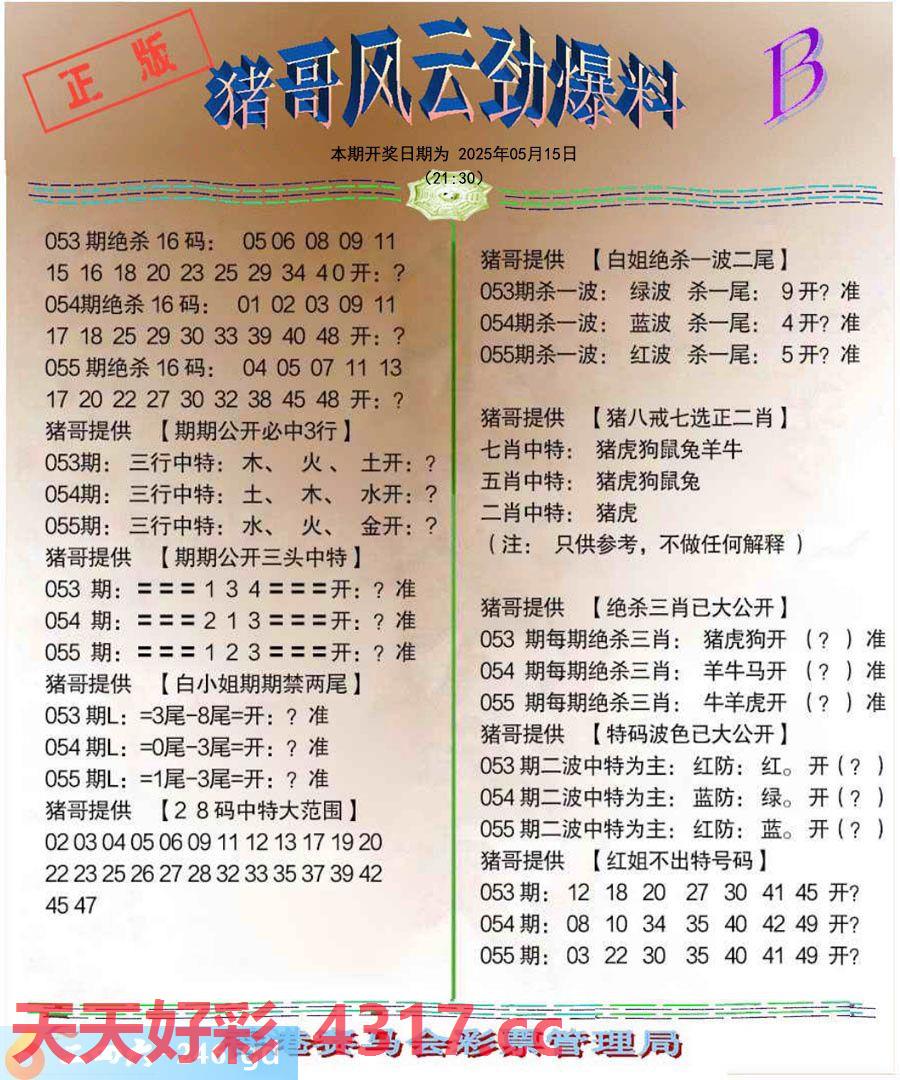 正版
猪哥风云劲爆料
B
本期开奖日期为 2025年05月15日
(21:30)
053期绝杀16码： 05 06 08 09 11
15 16 18 20 23 25 29 34 40开：?
054期绝杀16码： 01 02 03 09 11
17 18 25 29 30 33 39 40 48 开：?
055期绝杀16码： 04 05 07 11 13
17 20 22 27 30 32 38 45 48 开：?
猪哥提供 【期期公开必中3行】
053期：三行中特：木、 火、 土开：?
054期：三行中特：土、 木、 水开：?
055期：三行中特：水、 火、 金开：?
猪哥提供 【期期公开三头中特】
053 期：===134===开：?准
054 期：===213===开：?准
055 期：===123===开：?准
猪哥提供 【白小姐期期禁两尾】
053期L：=3尾-8尾=开：?准
054期L：=0尾-3尾=开：?准
055期L：=1尾-3尾=开：?准
猪哥提供 【28码中特大范围】
02 03 04 05 06 09 11 12 13 17 19 20
22 23 25 26 27 28 32 33 35 37 39 42
45 47
猪哥提供 【白姐绝杀一波二尾】
053期杀一波： 绿波 杀一尾： 9开?准
054期杀一波： 蓝波 杀一尾： 4开?准
055期杀一波： 红波 杀一尾： 5开?准
猪哥提供 【猪八戒七选正二肖】
七肖中特： 猪虎狗鼠兔羊牛
五肖中特： 猪虎狗鼠兔
二肖中特： 猪虎
（注： 只供参考，不做任何解释）
猪哥提供 【绝杀三肖已大公开】
053 期每期绝杀三肖： 猪虎狗开 （?）准
054 期每期绝杀三肖： 羊牛马开 （?）准
055 期每期绝杀三肖： 牛羊虎开 （?）准
猪哥提供 【特码波色已大公开】
053期二波中特为主：红防：红。开（?）
054期二波中特为主：蓝防：绿。开（?）
055期二波中特为主：红防：蓝。开（?）
猪哥提供 【红姐不出特号码】
053期： 12 18 20 27 30 41 45 开?
054期： 08 10 34 35 40 42 49 开?
055期： 03 22 30 35 40 41 49 开?
天天好彩 4317.cc
港赛马会彩票管理局